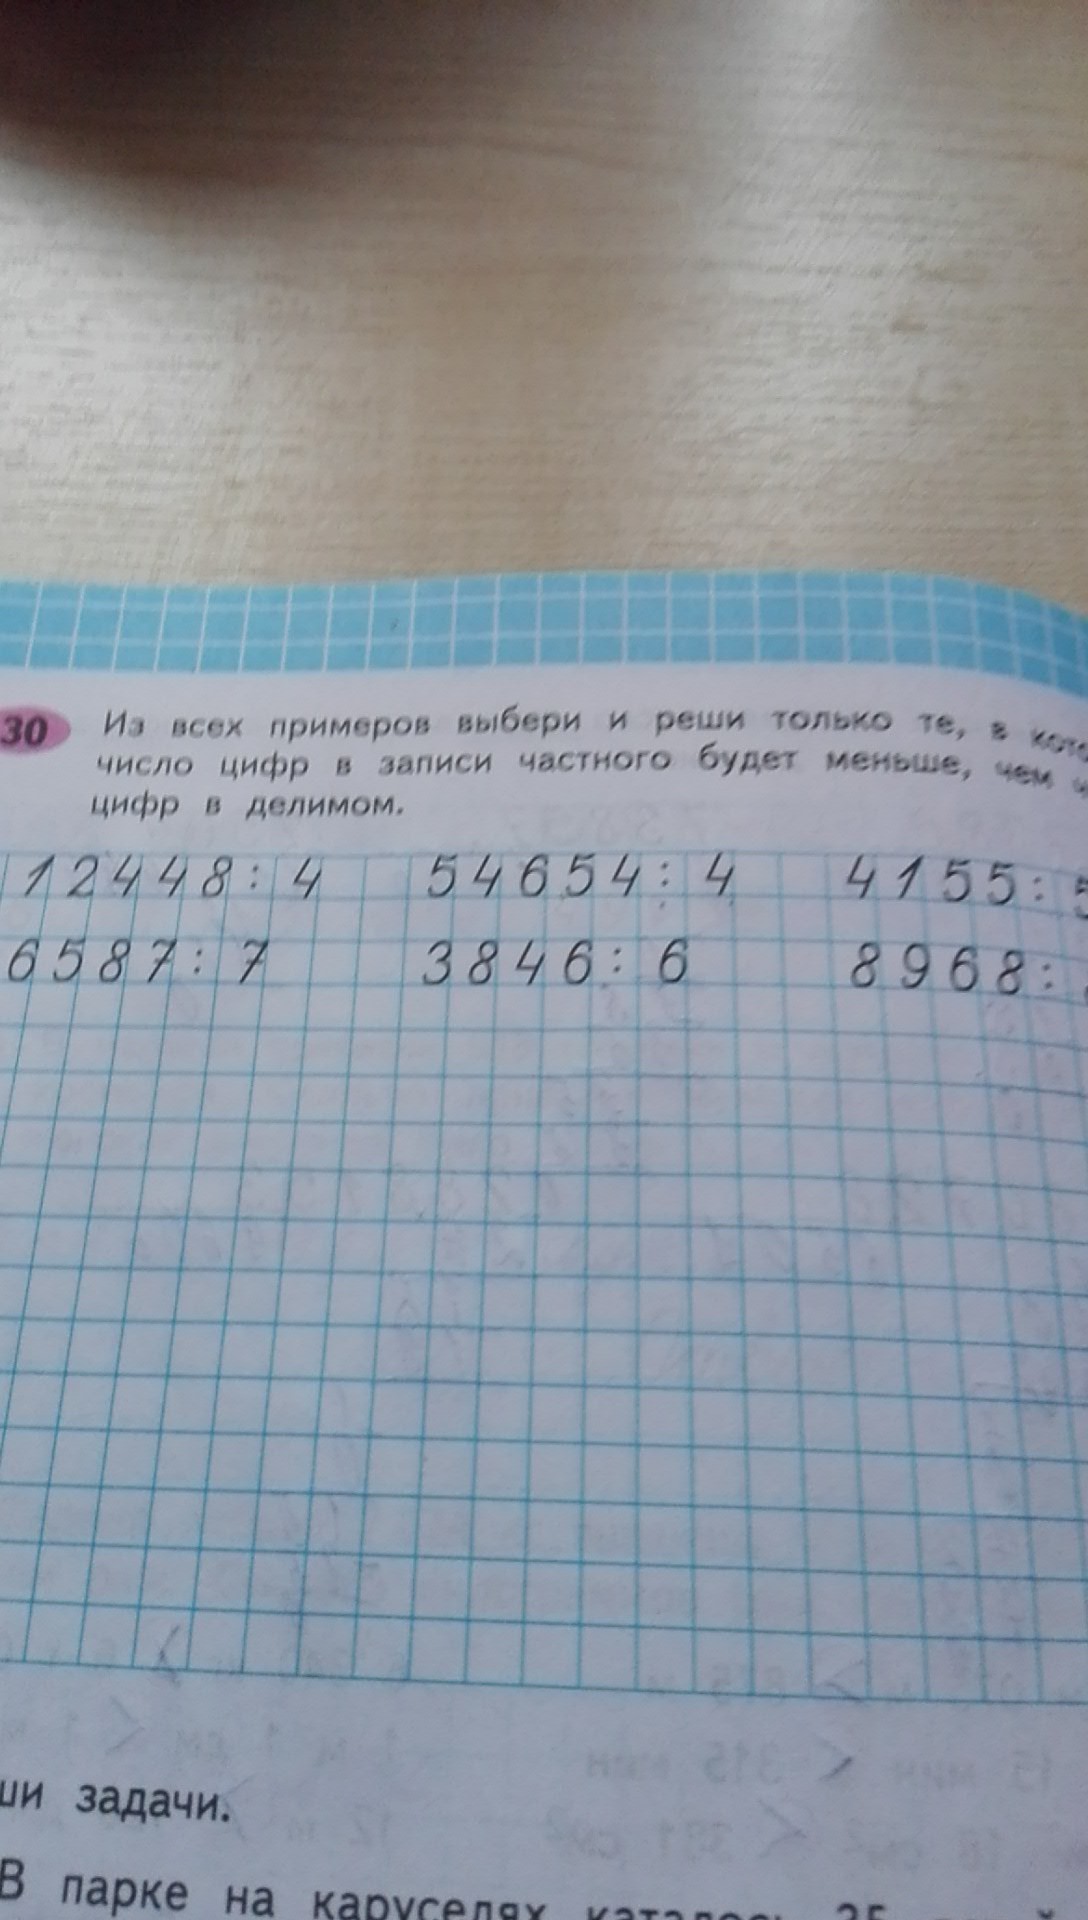 30 Из всех примеров выбери и реши только те, в
число цифр в записи частного будет меньше, чем
цифр в делимом.
12448 : 4 54654 : 4 4155 : 5
6587 : 7 3846 : 6 8968 :
ши задачи.
В парке на каруселях